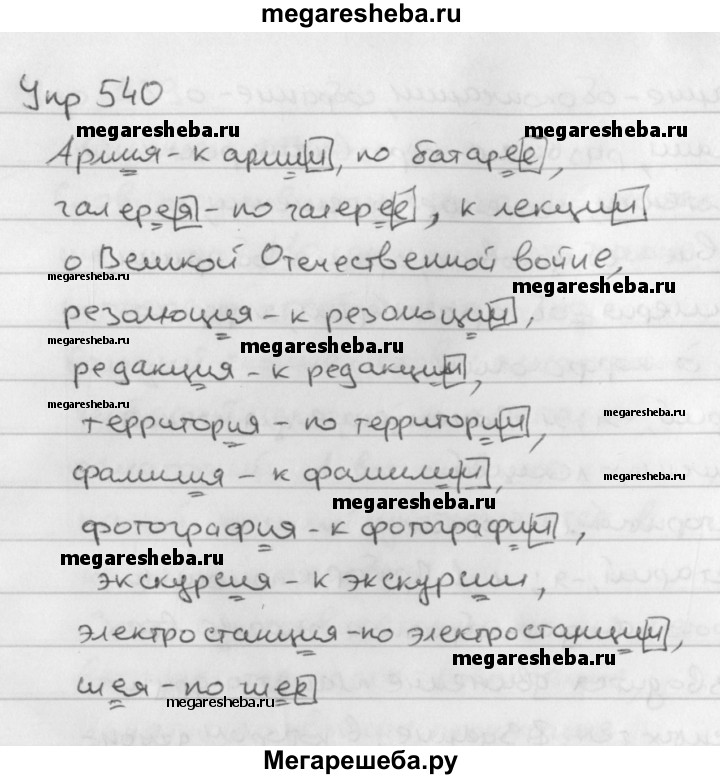 megaresheba.ru
Упр 540
megaresheba.ru
Армия - к армии, по батарее,
галерея - по галерее, к лекции
о Великой Отечественной войне,
megaresheba.ru
megaresheba.ru
резолюция - к резолюции,
megaresheba.ru
megaresheba.ru
редакция - к редакции,
megaresheba.ru
megaresheba.ru
территория - по территории,
фамилия - к фамилии,
megaresheba.ru
megaresheba.ru
фотография - к фотографии,
megaresheba.ru
экскурсия - к экскурсии,
электростанция - по электростанции,
megaresheba.ru
шея - по шее
megaresheba.ru
Мегарешеба.ру